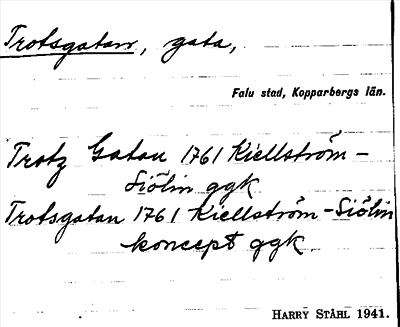 Trotsgatan, gata,
Falu stad, Kopparbergs län.
Trotz Gatan 1761 Kiellström-
Siölin ggk
Trotsgatan 1761 Kiellström-Siölin
koncept ggk.
HARRY STÅHL 1941.